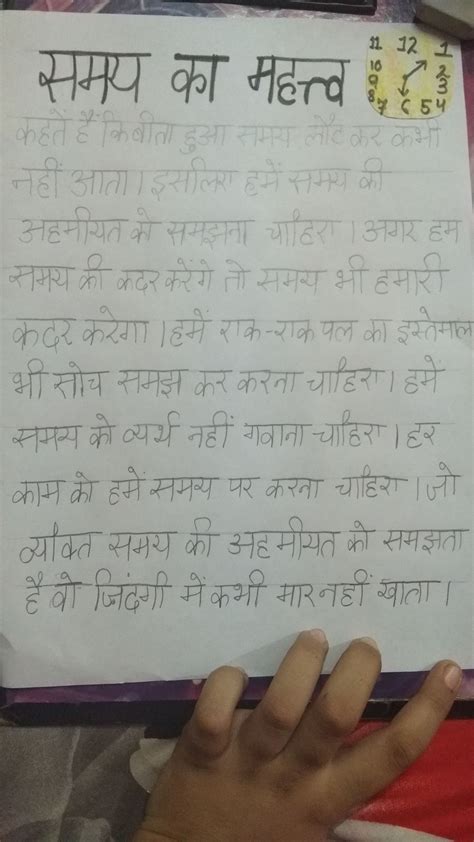 समय का महत्त्व
11 12 1
10 2
9 3
8 7 6 5 4
कहतें हैं कि बीता हुआ समय लौट कर कभी
नहीं आता। इसलिए हमें समय की
अहमीयत को समझना चाहिए। अगर हम
समय की कदर करेंगे तो समय भी हमारी
कदर करेगा। हमें एक-एक पल का इस्तेमाल
भी सोच समझ कर करना चाहिए। हमें
समय को व्यर्थ नहीं गवाना चाहिए। हर
काम को हमें समय पर करना चाहिए। जो
व्यक्ति समय की अहमीयत को समझता
है वो जिंदगी में कभी मार नहीं खाता।